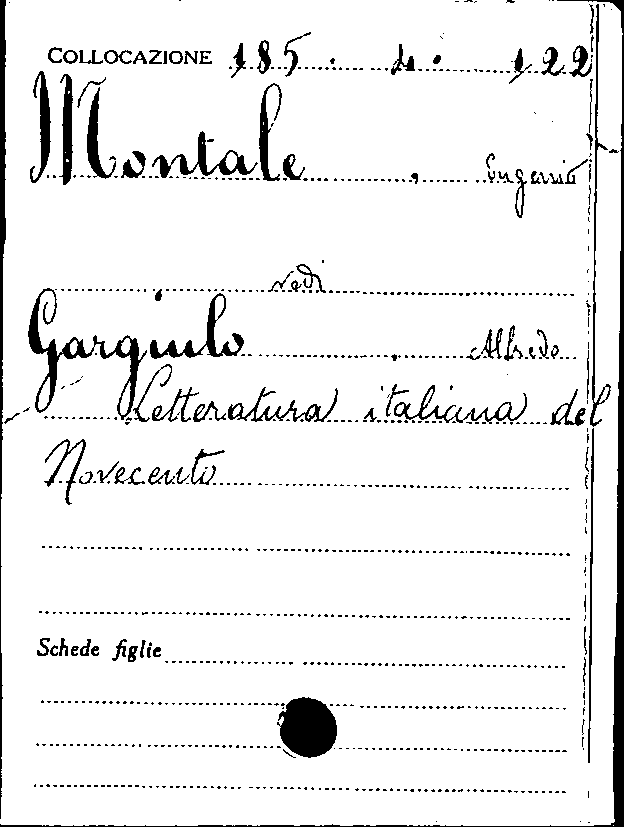 COLLOCAZIONE 185. 4. 122
Montale, Eugenio
vedi
Gargiulo, Alfredo
Letteratura italiana del
Novecento
Schede figlie